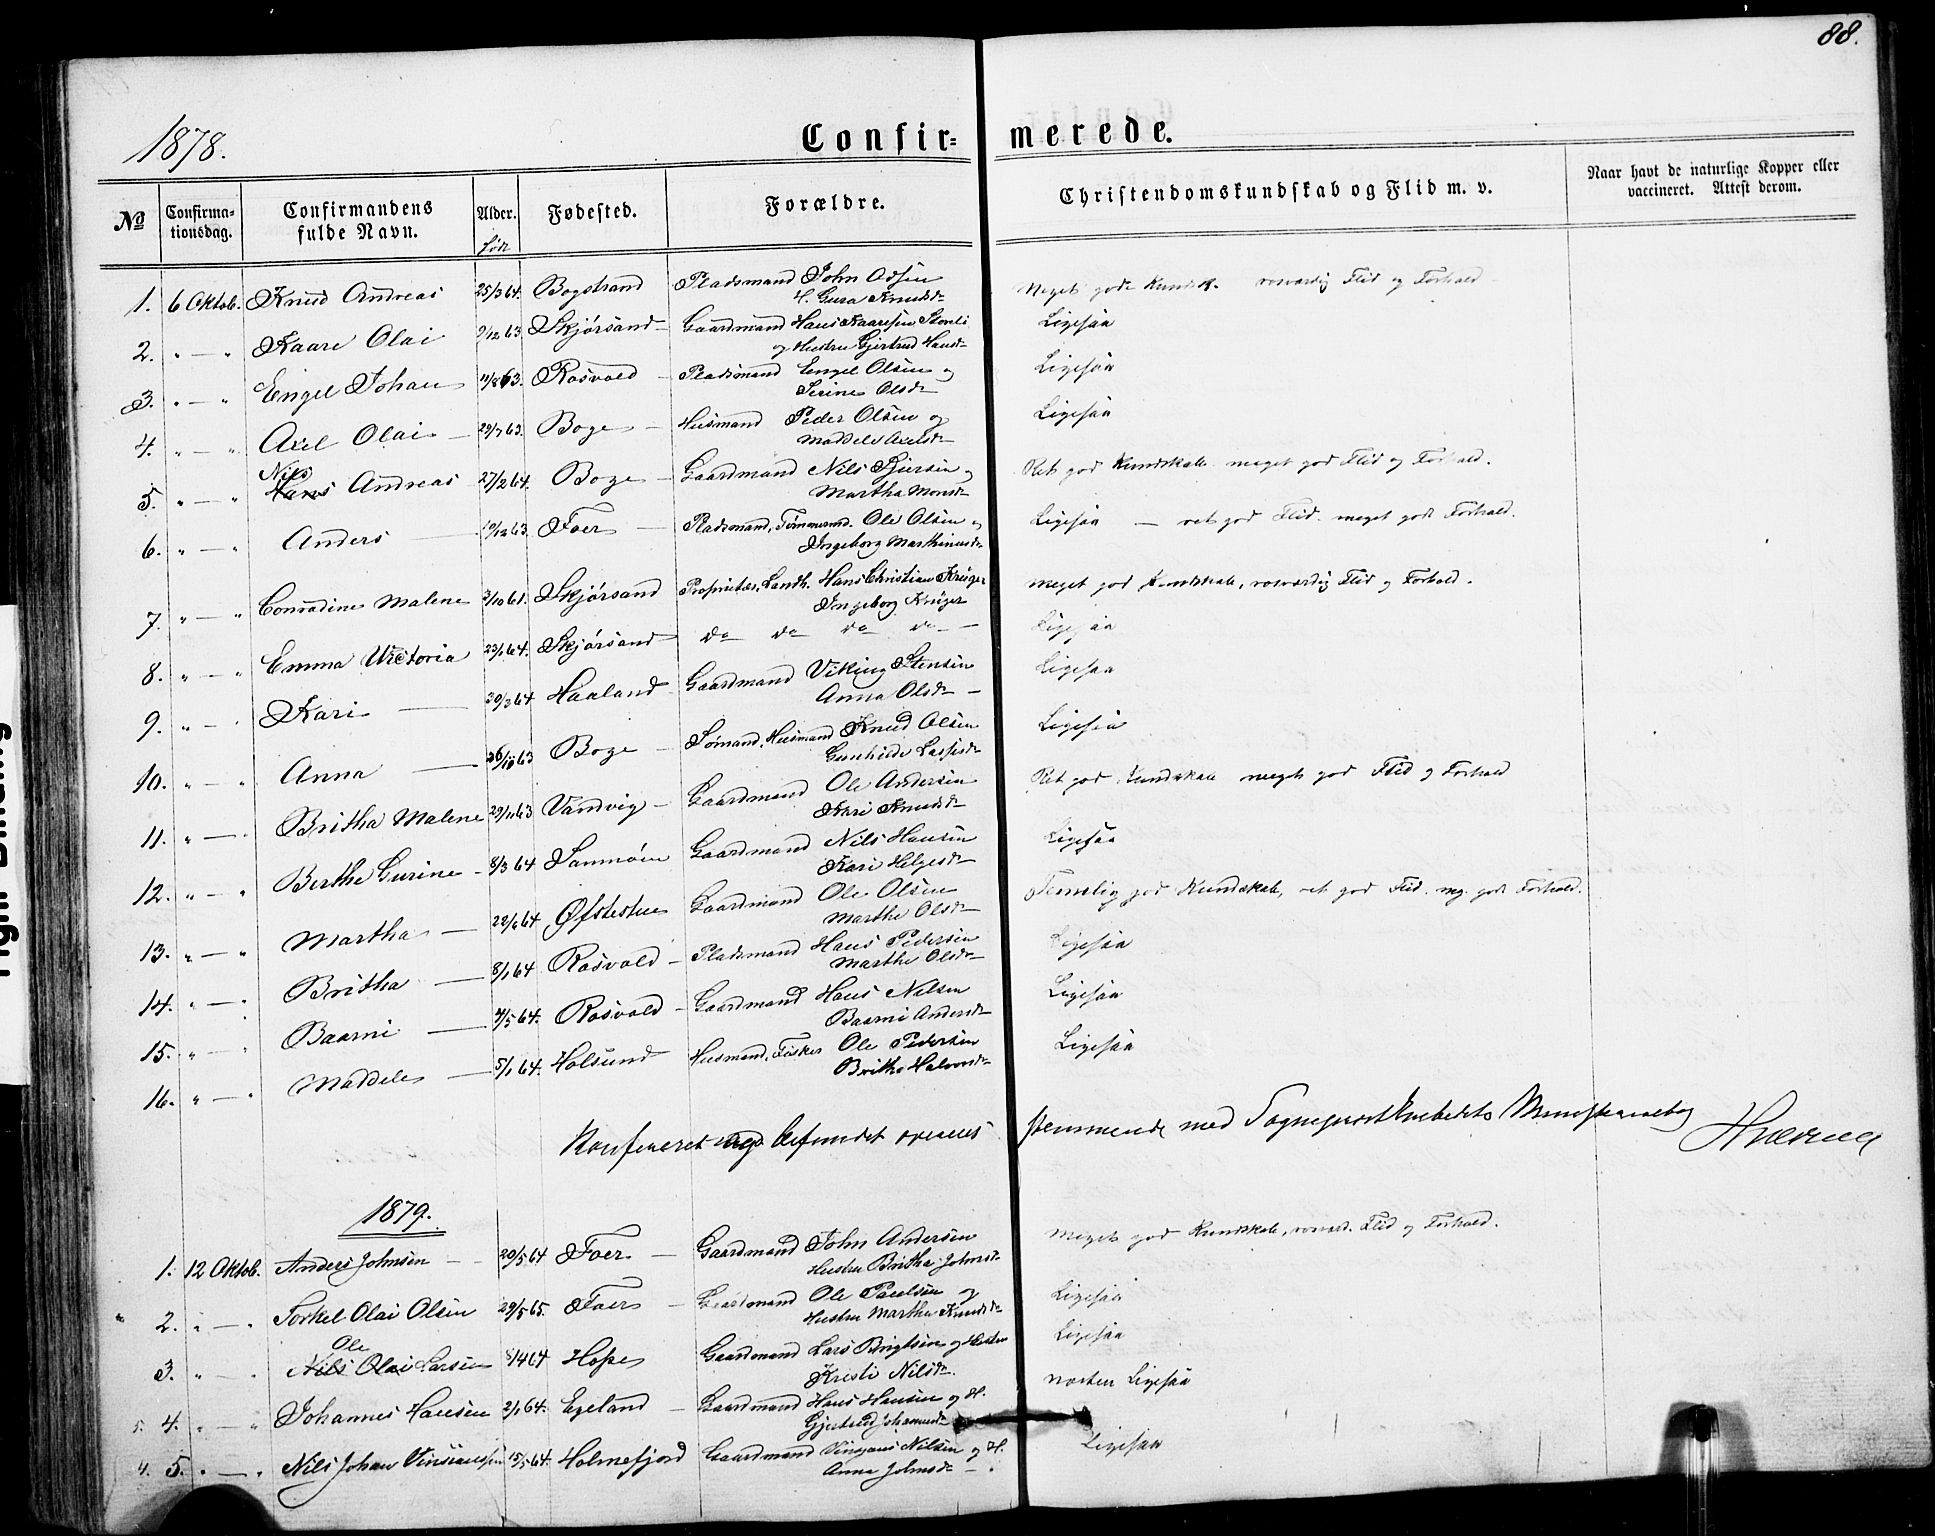 88.
1878.
Confirmerede.
No
Confirmationsdag.
Confirmandens fulde Navn.
Alder.
født
Fødested.
Forældre.
Christendomskundskab og Flid m. v.
Naar havt de naturlige Kopper eller vaccineret. Attest derom.
1. 6 Oktob. Knud Andreas 25/3 64. Bogstrand Pladsmand John Odsen Meget godt Kundsk. rosværdig Flid og Forhold
H. Gura Knudsdr
2. " — " Kaare Olai 9/12 63 Skjørsand Gaardmand Hans Kaaresen Ligesaa
og Hustru Gjertrud Hansdr
3. " — " Engel Johan 11/8 63. Rosvold Pladsmand Engel Olsen og Ligesaa
Serine Olsdr
4. " — " Axel Olai 29/7 63. Boge Husmand Peder Olsen og Ligesaa
Maddele Axelsdr
Nils
5. " — " Hans Andreas 27/2 64. Boge Gaardmand Nils og Ret god Kundskab meget god Flid og Forhold.
Martha Monsdr
6. " — " Anders 10/12 63 Foer Pladsmand, Tømmermd. Ole Olsen og Ligesaa — ret god Flid. meget godt Forhold.
Ingeborg Marthinusdr
7. " — " Conradine Malene 2/10 61. Skjørsand Proprietær, Landh. Hans Christian Krüger meget god Kundskab, rosværdig Flid og Forhold.
Ingeborg Krüger
8. " — " Emma Victoria 23/1 64. Skjørsand do do do do Ligesaa
9. " — " Kari 20/2 64 Haaland Gaardmand Viking Stensen Ligesaa
Anna Olsdr
10. " — " Anna 26/10 63 Boge Sømand, Husmand Knud Olsen Ligesaa
Gunhilde Lassesdr
11. " — " Britha Malene 29/11 63 Vandvig Gaardmand Ole Andersen Ret god Kundskab meget god Flid og Forhold
Kari Knudsdr
12. " — " Berthe Gurine 8/3 64 Sanmoen Gaardmand Nils Hansen Ligesaa
Kari Helgesdr
13. " — " Martha 22/6 64 Øfstestue Gaardmand Ole Olsen Temelig god Kundskab, ret god Flid. meg. godt Forhold.
Marthe Olsdr
14. " — " Britha 8/1 64 Rosvold Pladsmand Hans Pedersen Ligesaa
Marthe Olsdr
15. " — " Baarni 4/5 64. Rosvold Gaardmand Hans Nilsen Ligesaa
Baarni Andersdr
16. " — " Maddele 5/1 64. Holsund Husmand, Fisker Ole Pedersen Ligesaa
Britha Halvorsdr
Konfereret og befundet overens stemmende med Sogneprestembedets Ministerialbog
1879.
1. 12 Oktob. Anders Johnsen 20/5 64 Foer Gaardmand John Andersen Meget god Kundskab, rosværd. Flid og Forhold.
Hustru Britha Johnsdr
2. " — " Torkel Olai Olsen 29/5 65. Foer Gaardmand Ole Paulsen og Ligesaa
Hustru Martha Knudsdr
Ole
3. " — " Nils Olai Larsen 8/4 64 Hope Gaardmand Lars Brigtsen og Hustru Ligesaa
Kristi Nilsdr.
5. 4. " — " Johannes Hansen 2/1 64. Egeland Gaardmand Hans Hansen og H. næsten Ligesaa
Gjertrud Johannesdr
4. 5. " — " Nils Johan Vinsiansen 15/5 64. Holmefjord Gaardmand Vinsjans Nilsen og H. Ligesaa
Anna Johnsdr